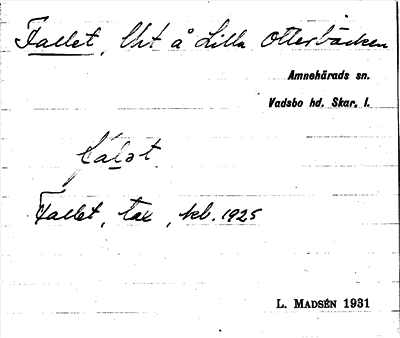 Fallet, Uht å Lilla Otterbäcken
Amnehärads sn.
Vadsbo hd. Skar. l.
falət
Fallet, tax, kb. 1925
L. MADSÉN 1931